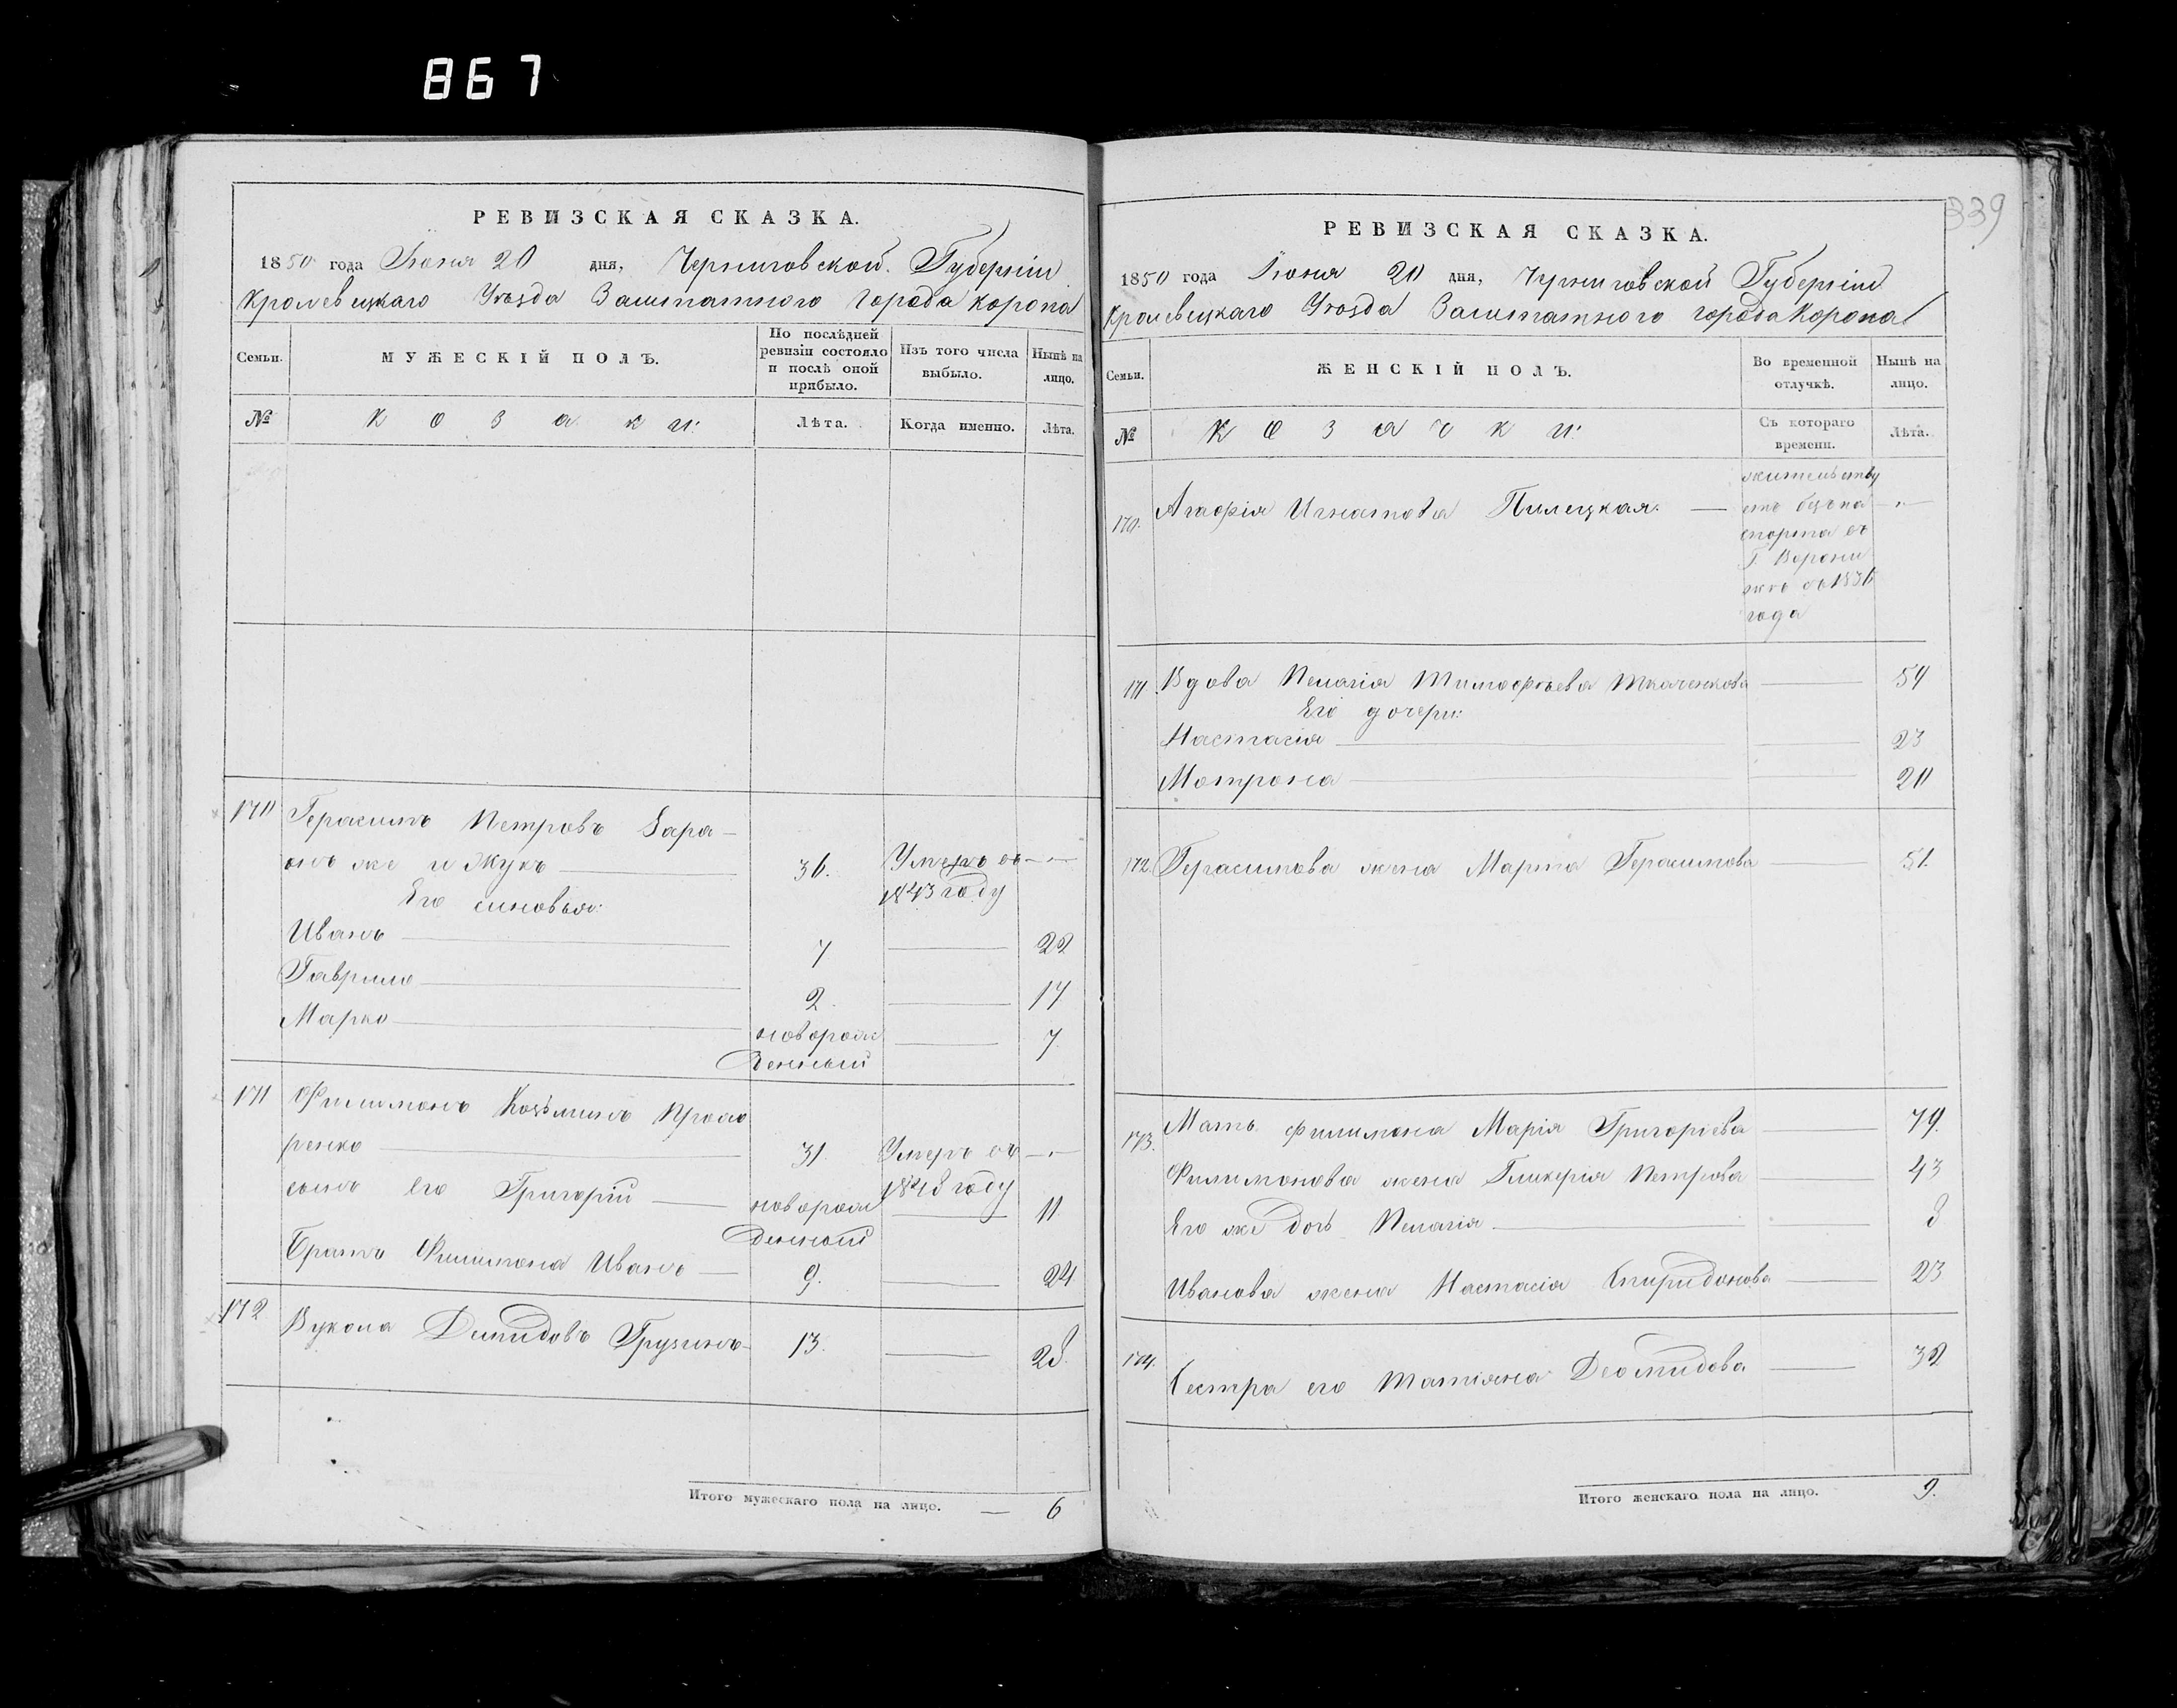 867
РЕВИЗСКАЯ СКАЗКА.
1850 года Іюня 20 дня, Черниговской Губерніи
Кролевецкаго Уѣзда Заштатного города Коропа
Семьи.
МУЖЕСКІЙ ПОЛЪ.
По послѣдней ревизіи состояло и послѣ оной прибыло.
Изъ того числа выбыло.
Нынѣ на лицо.
№
Козаки:
Лѣта.
Когда именно.
Лѣта.
170 Герасимъ Петровъ
онъ же и Жукъ — 36. Умеръ въ —"—
1843 году
Его синовья:
Иванъ — 7 — 22
Гаврило — 2. — 17
Марко — новорож — 7
денный
171 Филимонъ Козьминъ
ренко — 31. Умеръ въ —"—
1848 году
сынъ его Григорій — новорож — 11
денный
Братъ Филимона Иванъ — 9. — 24
172 Вукола Димидовъ Грузинъ — 13. — 28.
Итого мужескаго пола на лицо. — 6
339
РЕВИЗСКАЯ СКАЗКА.
1850 года Іюня 20 дня, Черниговской Губерніи
Кролевецкаго Уѣзда Заштатного города Коропа
Семьи.
ЖЕНСКІЙ ПОЛЪ.
Во временной отлучкѣ.
Нынѣ на лицо.
№
Козачки:
Съ котораго времени.
Лѣта.
170. Агафія Игнатова Пилецкая. — жительству —"—
етъ безъ па
спорта въ
Г. Вороне
жѣ съ 1836
года
171. Вдова Пелагія Тимофѣева Ткаченкова — 54
Его дочери:
Настасія — 23
Мотрона — 20
172. Герасимова жена Марта Герасимова — 51.
173. Мать Филимона Марія Григоріева — 79.
Филимонова жена Гликерія Петрова — 43
Его же дочь Пелагія — 8
Иванова жена Настасія Спиридонова — 23
174. Сестра его Татіяна Деомидова — 32
Итого женскаго пола на лицо. 9.